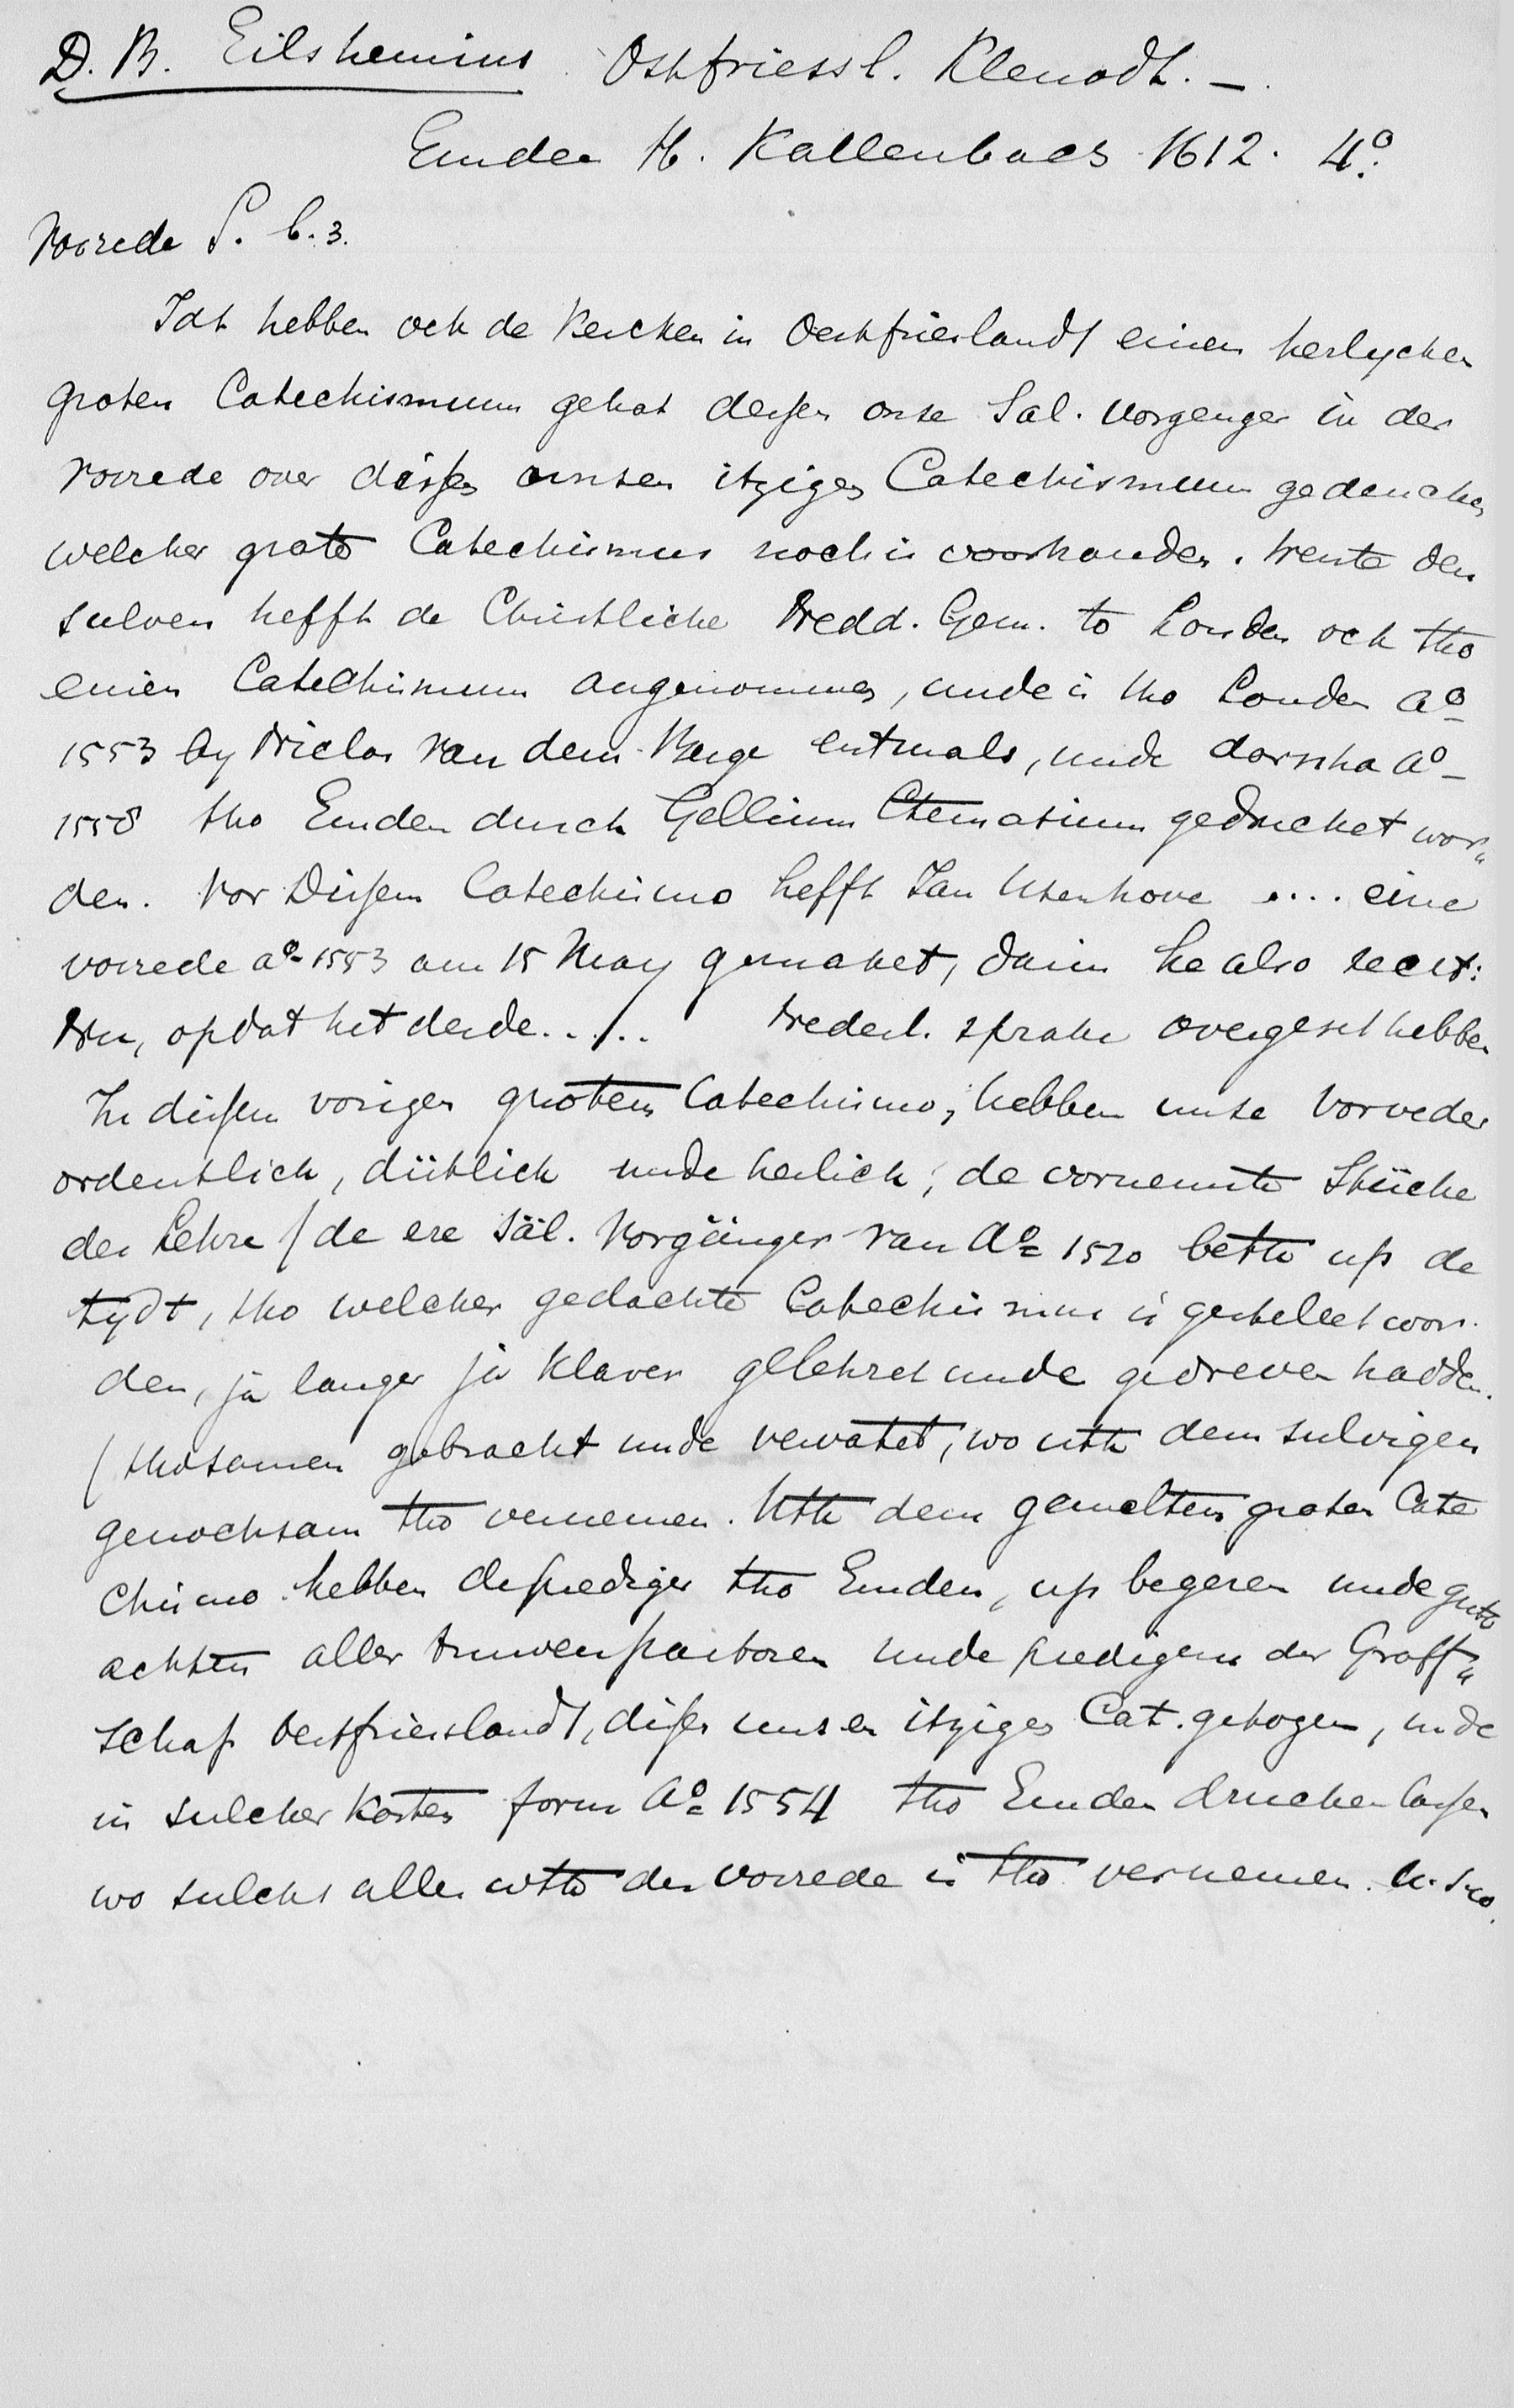 D. B. Eilshemius Ostfriessl. Klenodt. –
Emden H. Kallenbach 1612. 4º.
Vorrede S. b. 3.
Idt hebben ock de Kercken in Oestfrieslandt einen herlychen
groten Catechismum gehat dessen onse Sal. Vorgenger in der
Vorrede over dissen unsen itzigen Catechismum gedencken
welcher grote Catechismus noch is voorhanden. Wente den
sulven hefft de Christliche Nedd. Gem. to Londen ock tho
einen Catechismum angenommen, unde is tho Londen aº
1553 by Niclas van dem Berge erstmals, unde darnha aº
1558 tho Emden durch Gellium Ctematium gedrucket wor„
den. Vor dissem Catechismo hefft Jan Utenhove .... eine
vorrede aº 1553 am 15 May gemaket, darin he also
Nu, opdat het derde..... Nederl. sprake overgeset hebben
In dissem vorigen groten Catechismo, hebben unse Vorveder
ordentlich, dütlich unde herlich, de vornemste Stücke
der Lehre / de ere Säl. Vorgänger van Aº 1520 betho up de
tydt, tho welcher gedachte Catechismus is gestellet wor.
den, ja langer ja klarer gelehret unde gedreven hadden.
/ thosamen gebracht unde vervatet, wo uth dem sulvigen
genochsam tho vernemen. Uth dem gemelten groten Cate
chismo hebben de prediger tho Emden, up begeren unde gute
achten aller truwen pastoren unde predigern der Graff„
schap Oestfrieslandt, dissen unsen itzigen Cat. getogen, unde
in sulcher korten form Aº 1554 tho Emden drucken lassen
wo sulchs alles uth der vorrede is tho vernemen. u.s.w.